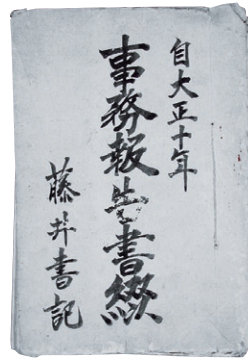 自大正十年
事務報告書綴
藤井書記